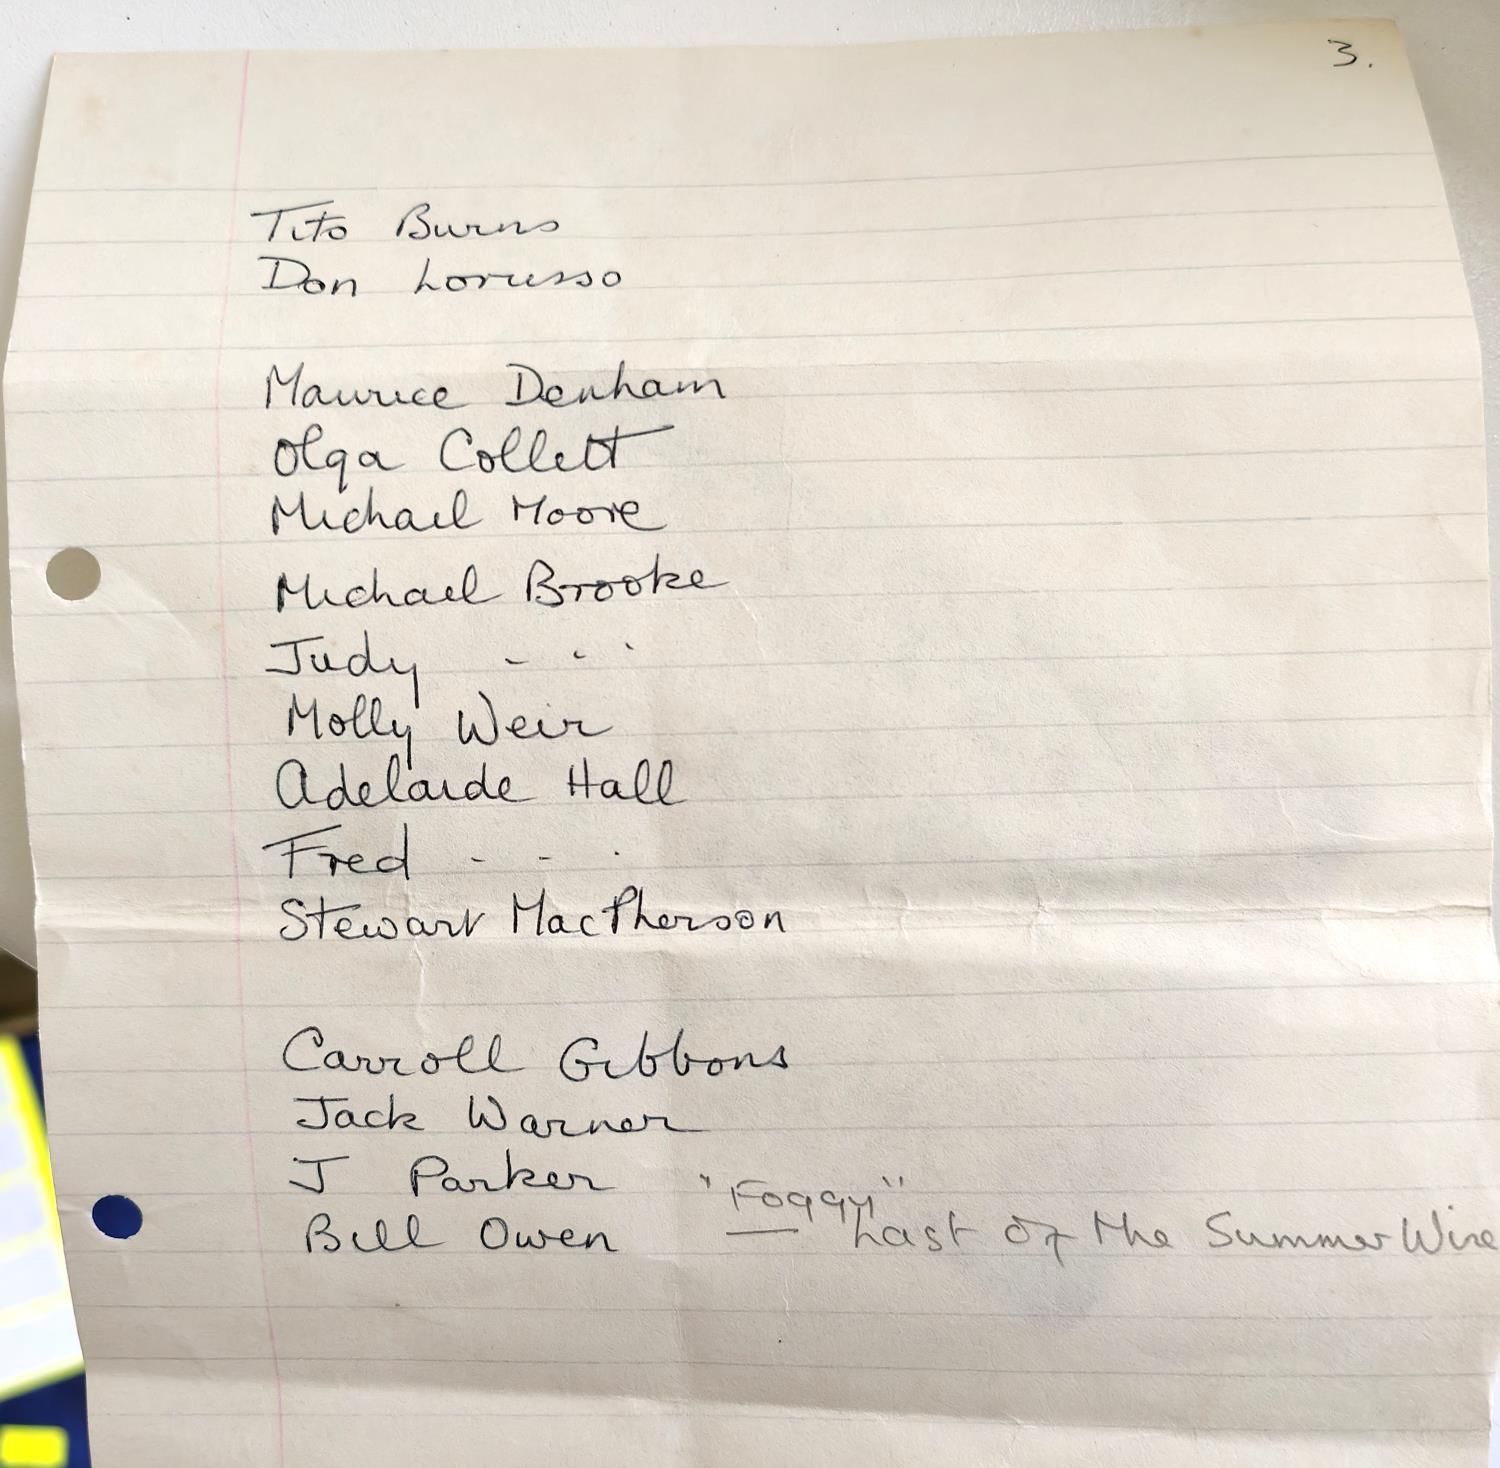 3.
Tito Burns
Don Lorusso
Maurice Denham
Olga Collett
Michael Moore
Michael Brooke
Judy - - -
Molly Weir
Adelaide Hall
Fred - - -
Stewart MacPherson
Carroll Gibbons
Jack Warner
J Parker
"Foggy"
Bill Owen — Last of the Summer Wine